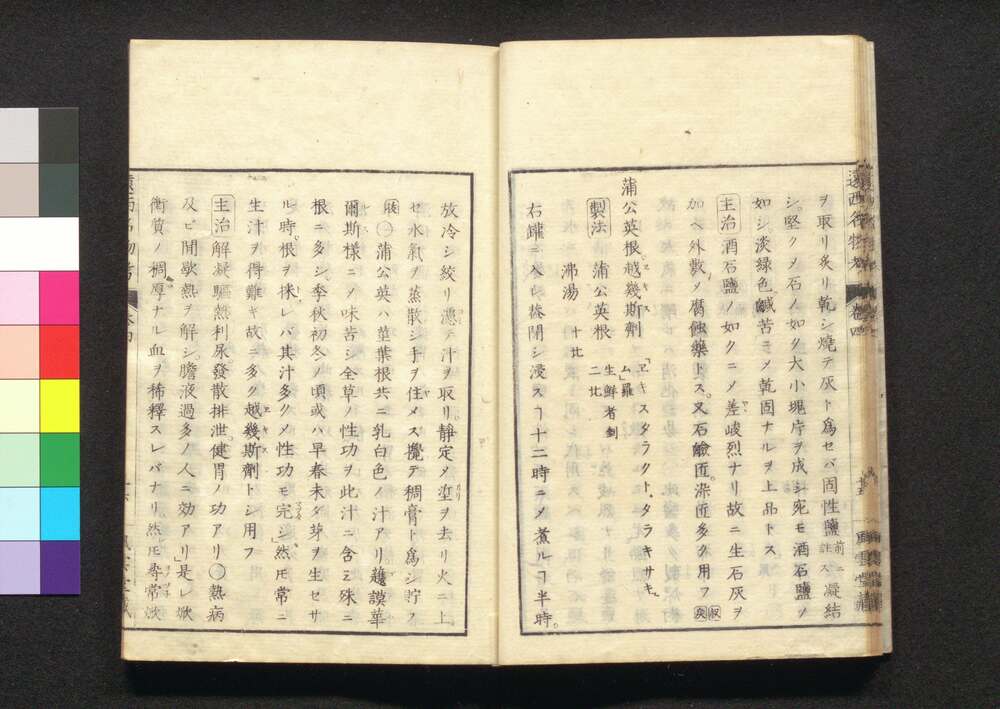 ヲ取リ炙リ乾シ燒テ灰ト爲セバ固性鹽前ニ註ス凝結
シ。堅クメ石ノ如ク大小塊片ヲ成シ宛モ酒石鹽ノ
如シ。淡綠色鹹苦ニメ乾固ナルヲ上品トス
主治 酒石鹽ノ如クニメ差峻烈ナリ故ニ生石灰ヲ
加ヘ外敷ノ腐蝕藥トス。又石鹼匠。染匠多ク用フ
蒲公英根越幾斯劑 「ヱキスタラクト、タラキサキ、ム」羅
製法 蒲公英根 生鮮者剉 二比
沸湯 十比
右罐ニ入レ蓋閉シ浸スヿ十二時ニメ煮ルヿ半時。
遠西名物考 卷四
放冷シ絞リ濾テ汁ヲ取リ靜定メ滓ヲ去リ火ニ上
セ水氣ヲ蒸散シ手ヲ住メス攪テ稠膏ト爲シ貯フ
〇蒲公英ハ莖葉根共ニ乳白色ノ汁アリ。越幾
爾斯樣ニメ味苦シ全草ノ性功ヲ此汁ニ含ミ殊ニ
根ニ多シ季秋初冬ノ頃或ハ早春未タ芽ヲ生セサ
ル時。根ヲ採レバ其汁多クメ性功モ完シ」然モ常ニ
生汁ヲ得難キ故ニ多ク越幾斯劑トシ用フ
主治 解凝驅熱利尿發散排泄。健胃ノ功アリ〇熱病
及ヒ間歇熱ヲ解シ。膽液過多ノ人ニ効アリ」是レ焮
衝質ノ稠厚ナル血ヲ稀釋スレバナリ然モ尋常焮